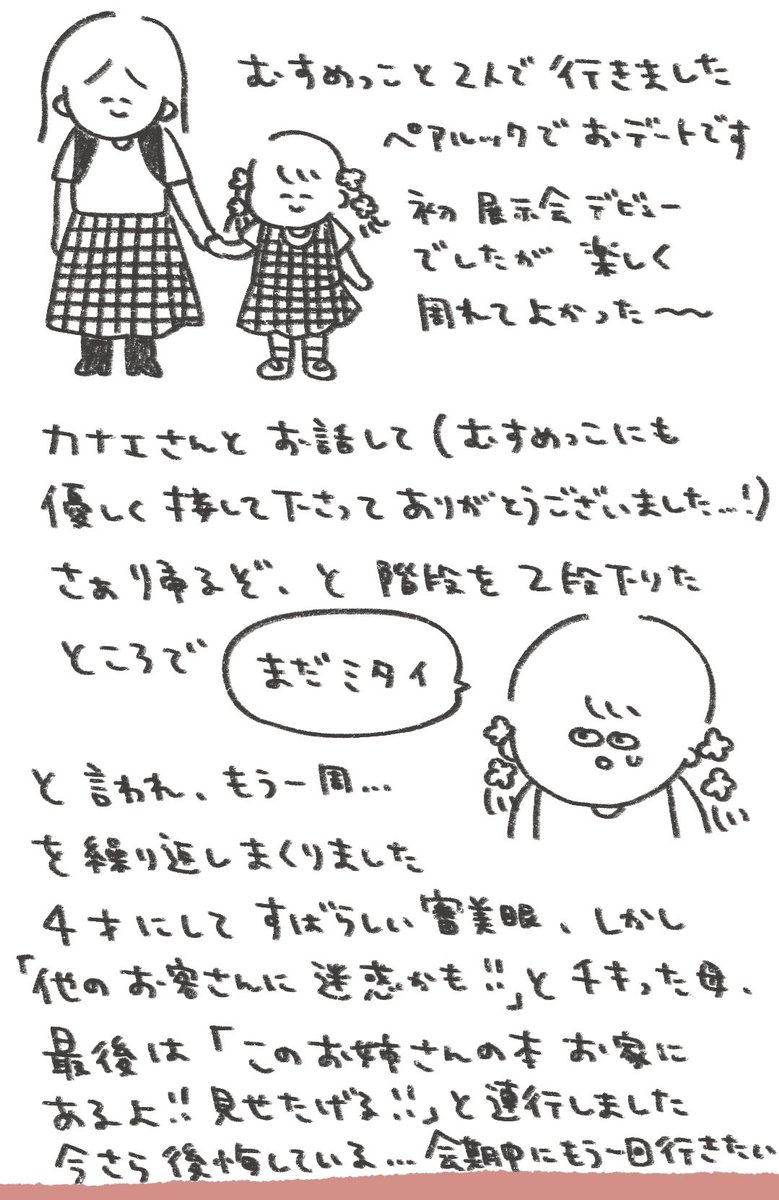 むすめっこと2人で行きました
ペアルックでおデートです
初展示会デビュー
でしたが楽しく
周れてよかった〜
カナエさんとお話して(むすめっこにも
優しく接して下さってありがとうございました…!)
さぁり帰るぞ、と階段を2段下りた
ところで
まだミタイ
と言われ、もう一周…
を繰り返しまくりました
4才にしてすばらしい審美眼、しかし
「他のお客さんに迷惑かも!!」とチキった母、
最後は「このお姉さんの本お家に
あるよ!!見せたげる!!」と連行しました
今さら後悔している…会期中にもう一回行きたい